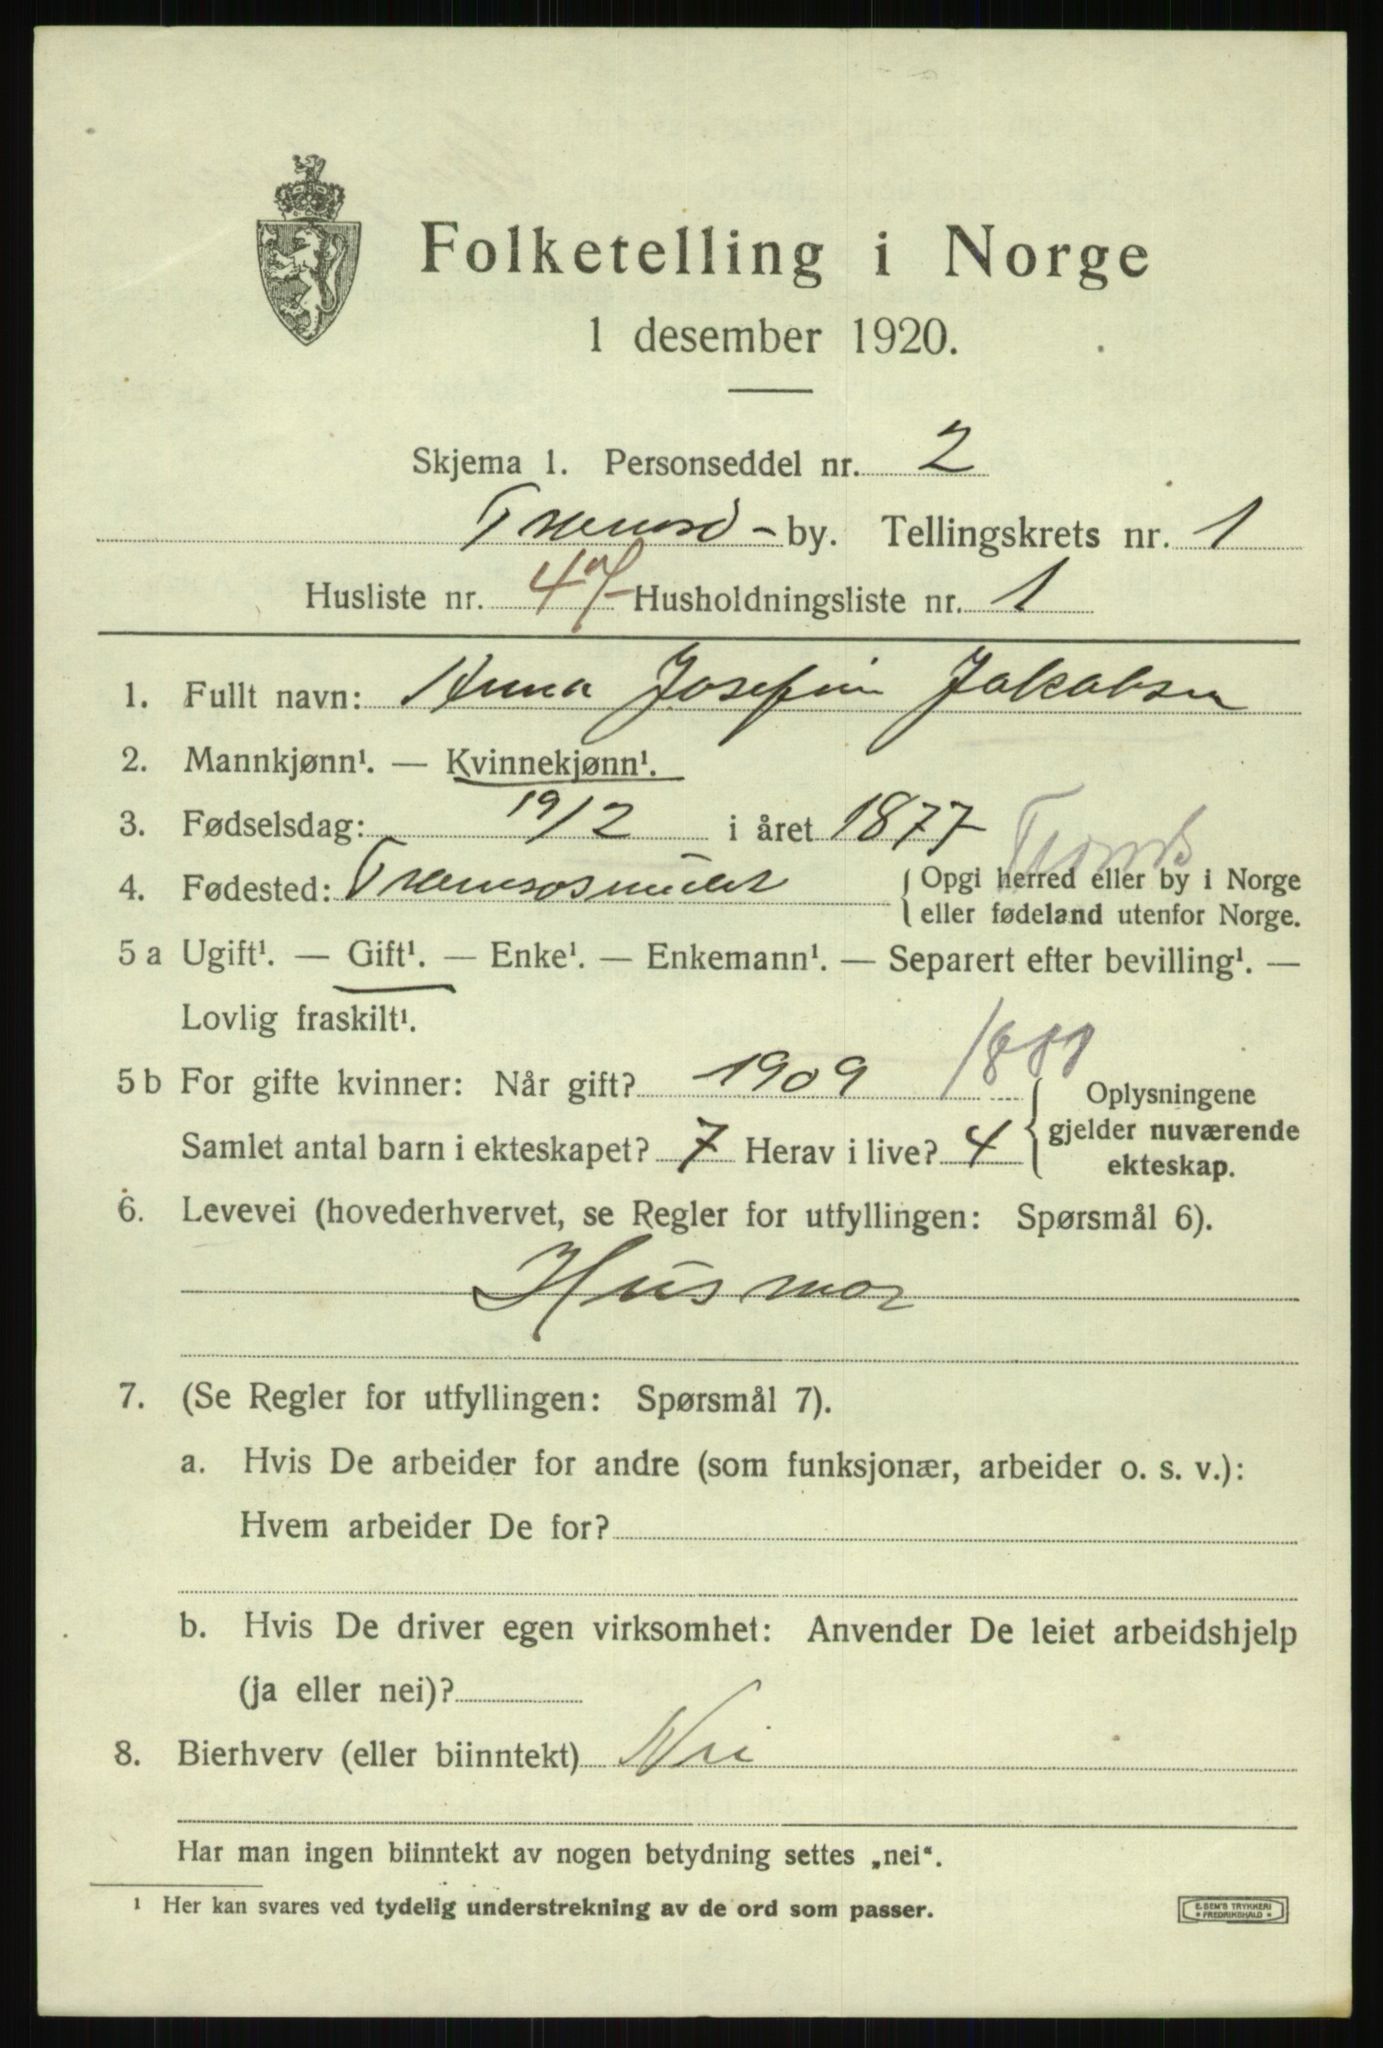 Folketelling i Norge
1 desember 1920.
Skjema 1. Personseddel nr. 2
Tromsø - by. Tellingskrets nr. 1
Husliste nr. 47 Husholdningsliste nr. 1
1. Fullt navn: Anna Josefine Jakobsen
2. Mannkjønn¹. — Kvinnekjønn¹.
3. Fødselsdag: 19/2 i året 1877
4. Fødested: Tromsøsundet { Opgi herred eller by i Norge
eller fødeland utenfor Norge.
Troms
5 a Ugift¹. — Gift¹. — Enke¹. — Enkemann¹. — Separert efter bevilling¹. —
Lovlig fraskilt¹.
5 b For gifte kvinner: Når gift? 1909
Oplysningene
Samlet antal barn i ekteskapet? 7 Herav i live? 4 { gjelder nuværende
ekteskap.
6. Levevei (hovederhvervet, se Regler for utfyllingen: Spørsmål 6).
Husmor
7. (Se Regler for utfyllingen: Spørsmål 7).
a. Hvis De arbeider for andre (som funksjonær, arbeider o. s. v.):
Hvem arbeider De for?
b. Hvis De driver egen virksomhet: Anvender De leiet arbeidshjelp
(ja eller nei)?
8. Bierhverv (eller biinntekt) Nei
Har man ingen biinntekt av nogen betydning settes „nei“.
¹ Her kan svares ved tydelig understrekning av de ord som passer.
E. SEM'S TRYKKERI
* FREDRIKSHALD *